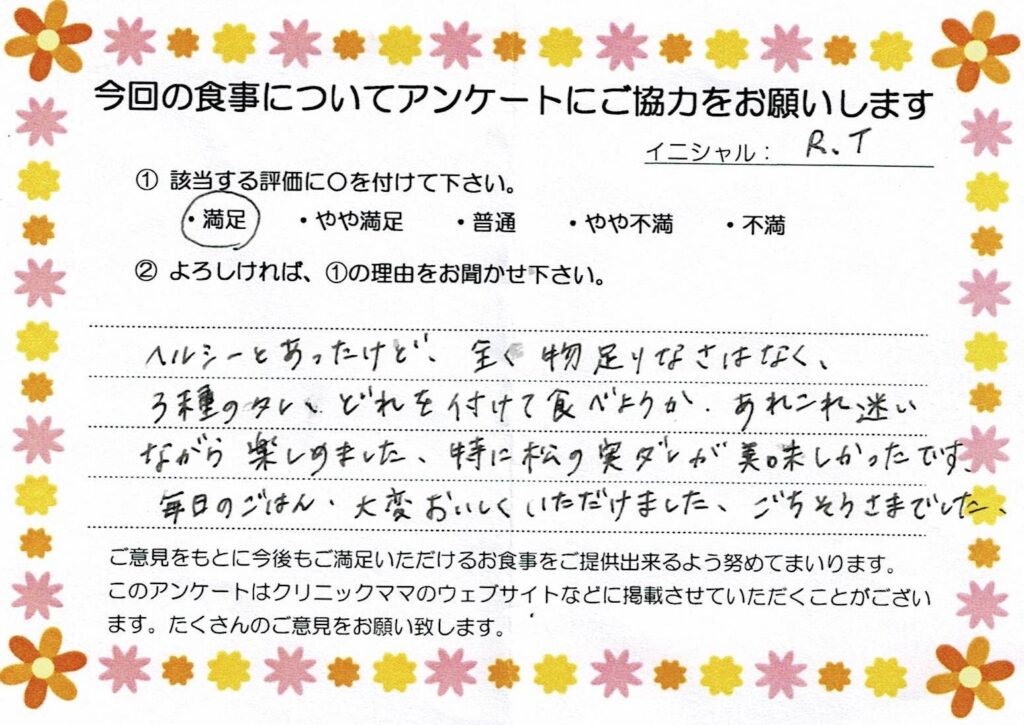 今回の食事についてアンケートにご協力をお願いします
イニシャル： R.T
① 該当する評価に〇を付けて下さい。
・満足 ・やや満足 ・普通 ・やや不満 ・不満
② よろしければ、①の理由をお聞かせ下さい。
ヘルシーとあったけど、全く物足りなさはなく、
3種のタレ、どれを付けて食べようか、あれこれ迷い
ながら楽しめました、特に松の実ダレが美味しかったです、
毎日のごはん、大変おいしくいただけました、ごちそうさまでした、
ご意見をもとに今後もご満足いただけるお食事をご提供出来るよう努めてまいります。
このアンケートはクリニックママのウェブサイトなどに掲載させていただくことがござい
ます。たくさんのご意見をお願い致します。